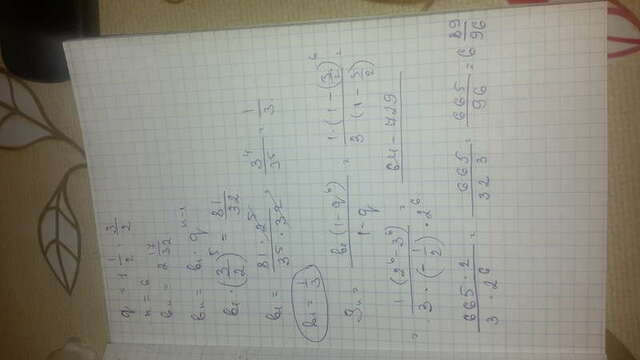 q = 1 1/2 = 3/2
n = 6
bn = 2 17/32
bn = b1 · q^(n-1)
b1 · (3/2)^5 = 81/32
b1 = (81 · 2^5)/(3^5 · 32) = 3^4/3^5 = 1/3
b1 = 1/3
Sn = (b1 (1 - q^6))/(1 - q) = (1 · (1 - (3/2)^6))/(3 (1 - 3/2)) =
= (1 (2^6 - 3^6))/(3 · (-1/2) · 2^6) = (64 - 729)
(665 · 2)/(3 · 2^6) = 665/(32 · 3) = 665/96 = 6 89/96